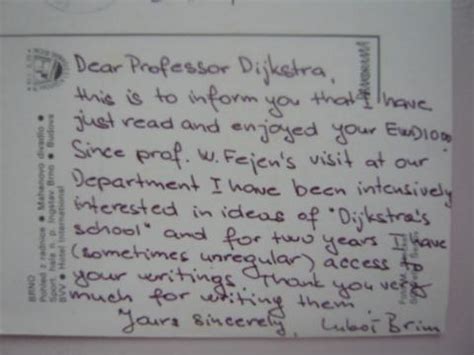 Dear Professor Dijkstra,
this is to inform you that I have
just read and enjoyed your EWD1000.
Since prof. W. Fejen's visit at our
Department I have been intensively
interested in ideas of "Dijkstra's
school" and for two years I have
(sometimes unregular) access to
your writings. Thank you very
much for writing them.
Yours sincerely, Luboš Brim
PANORAMA
BRNO
Pohled z radnice ● Mahenovo divadlo ●
Sport. hala n. p. Ingstav Brno ● Budova
BVV ● Hotel International